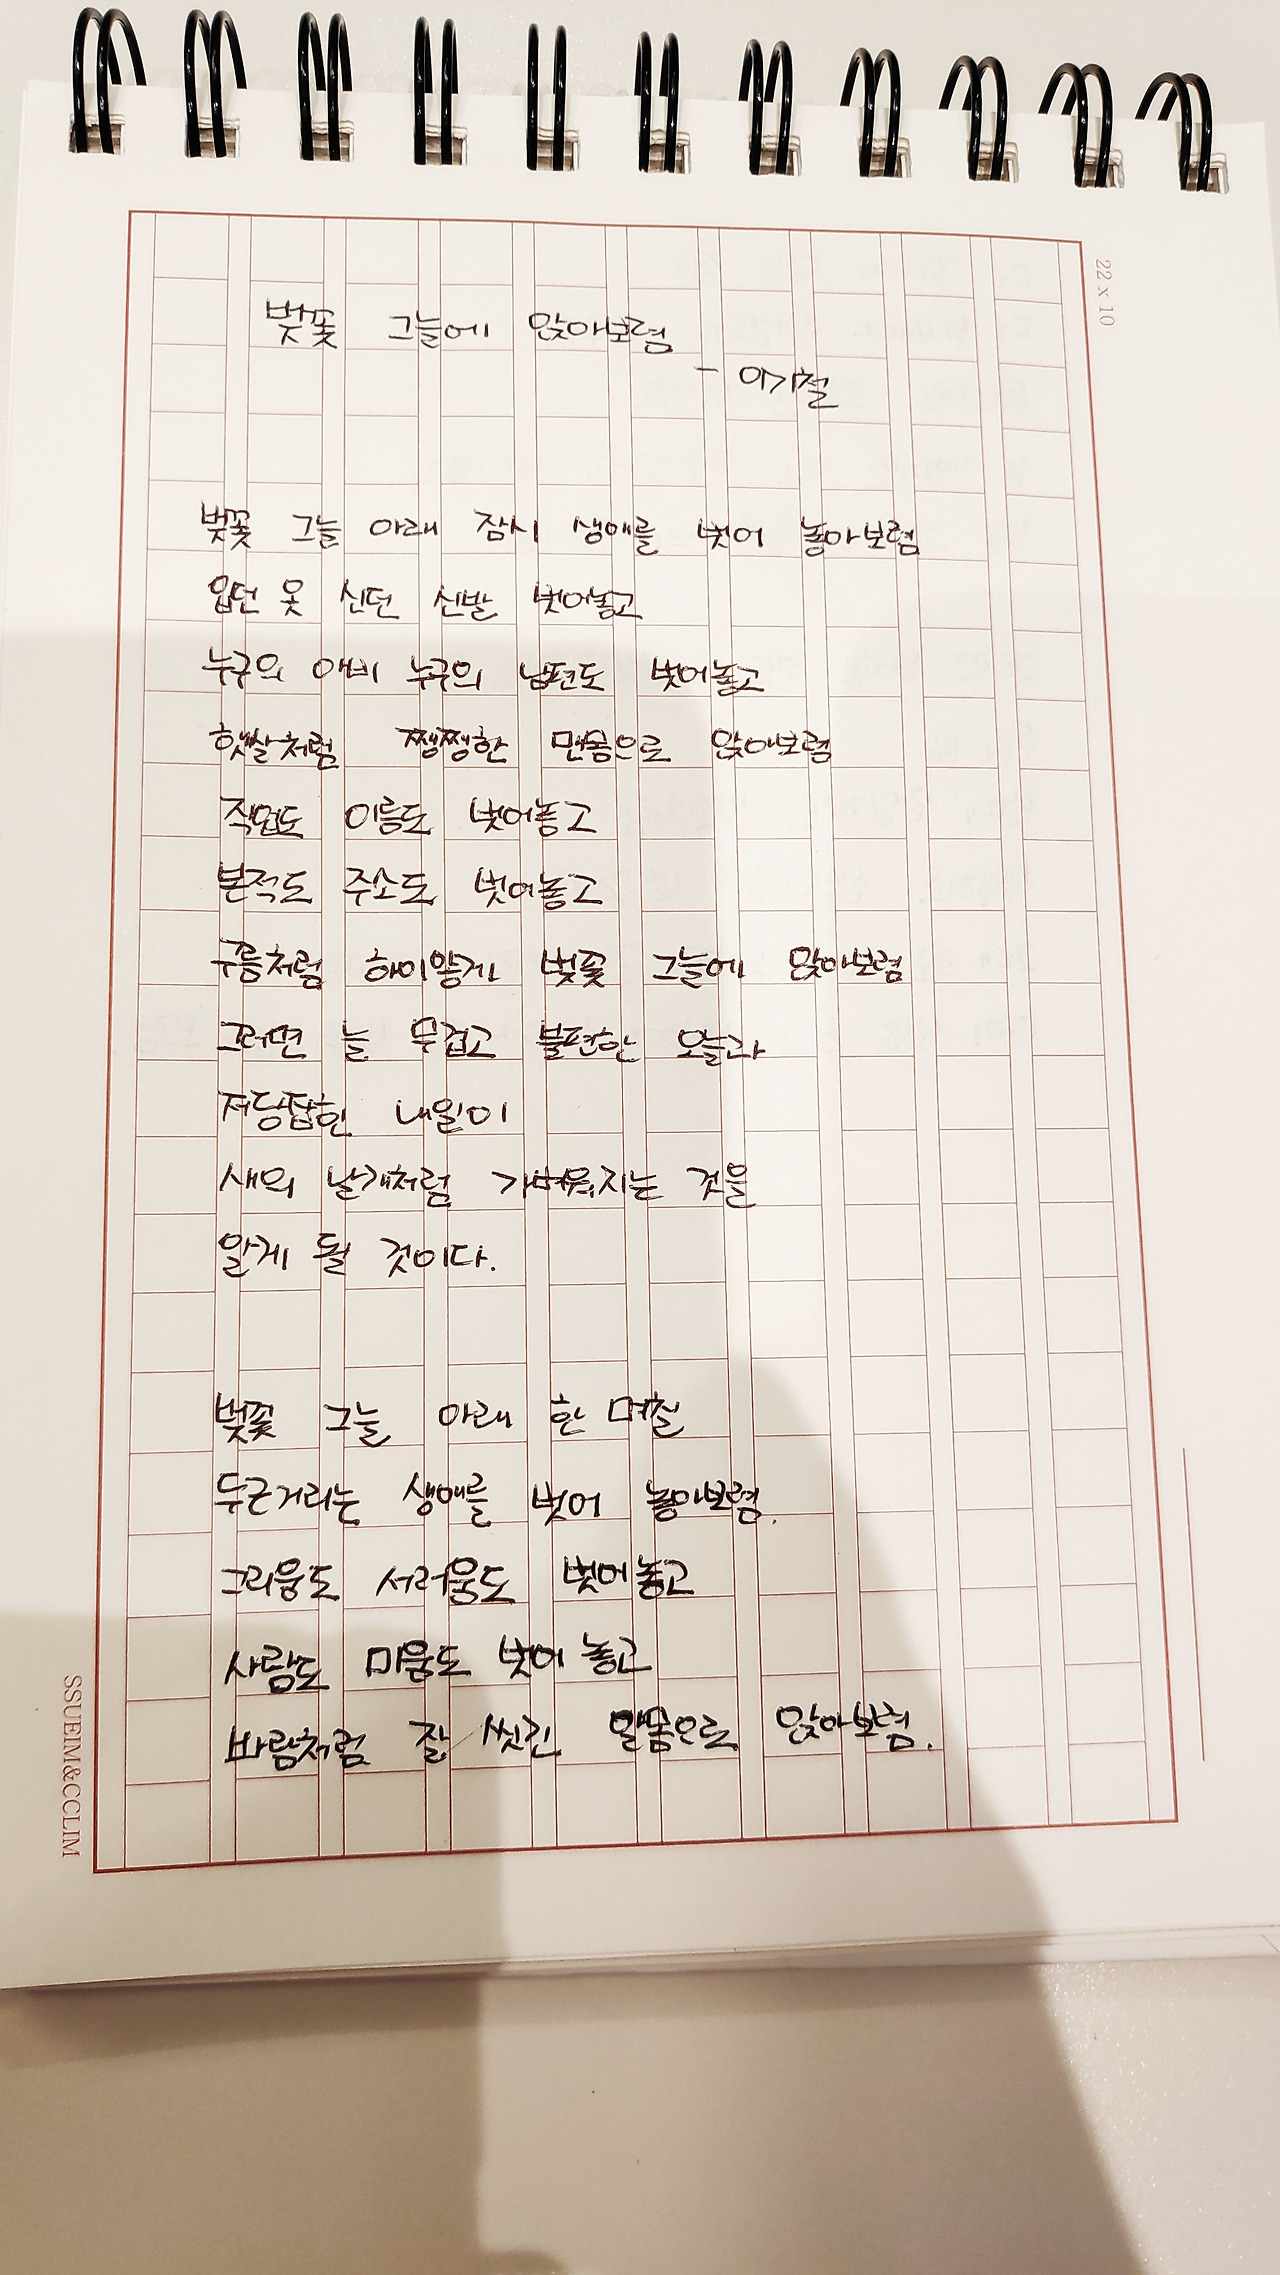 벚꽃 그늘에 앉아보렴
- 이기철
22 x 10
벚꽃 그늘 아래 잠시 생애를 벗어 놓아보렴
입던 옷 신던 신발 벗어놓고
누구의 아비 누구의 남편도 벗어놓고
햇살처럼 쨍쨍한 맨몸으로 앉아보렴
직업도 이름도 벗어놓고
본적도 주소도 벗어놓고
구름처럼 하이얗게 벚꽃 그늘에 앉아보렴
그러면 늘 무겁고 불편한 오늘과
저당잡힌 내일이
새의 날개처럼 가벼워지는 것을
알게 될 것이다.
벚꽃 그늘 아래 한 며칠
두근거리는 생애를 벗어 놓아보렴.
그리움도 서러움도 벗어놓고
사랑도 미움도 벗어 놓고
바람처럼 잘 씻긴 알몸으로 앉아보렴.
SSUEIM&CCLIM